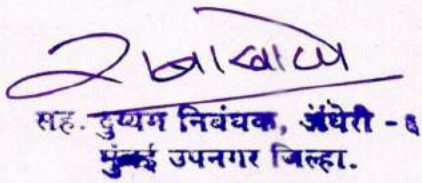 सह. दुय्यम निबंधक, अंधेरी - ६
मुंबई उपनगर जिल्हा.